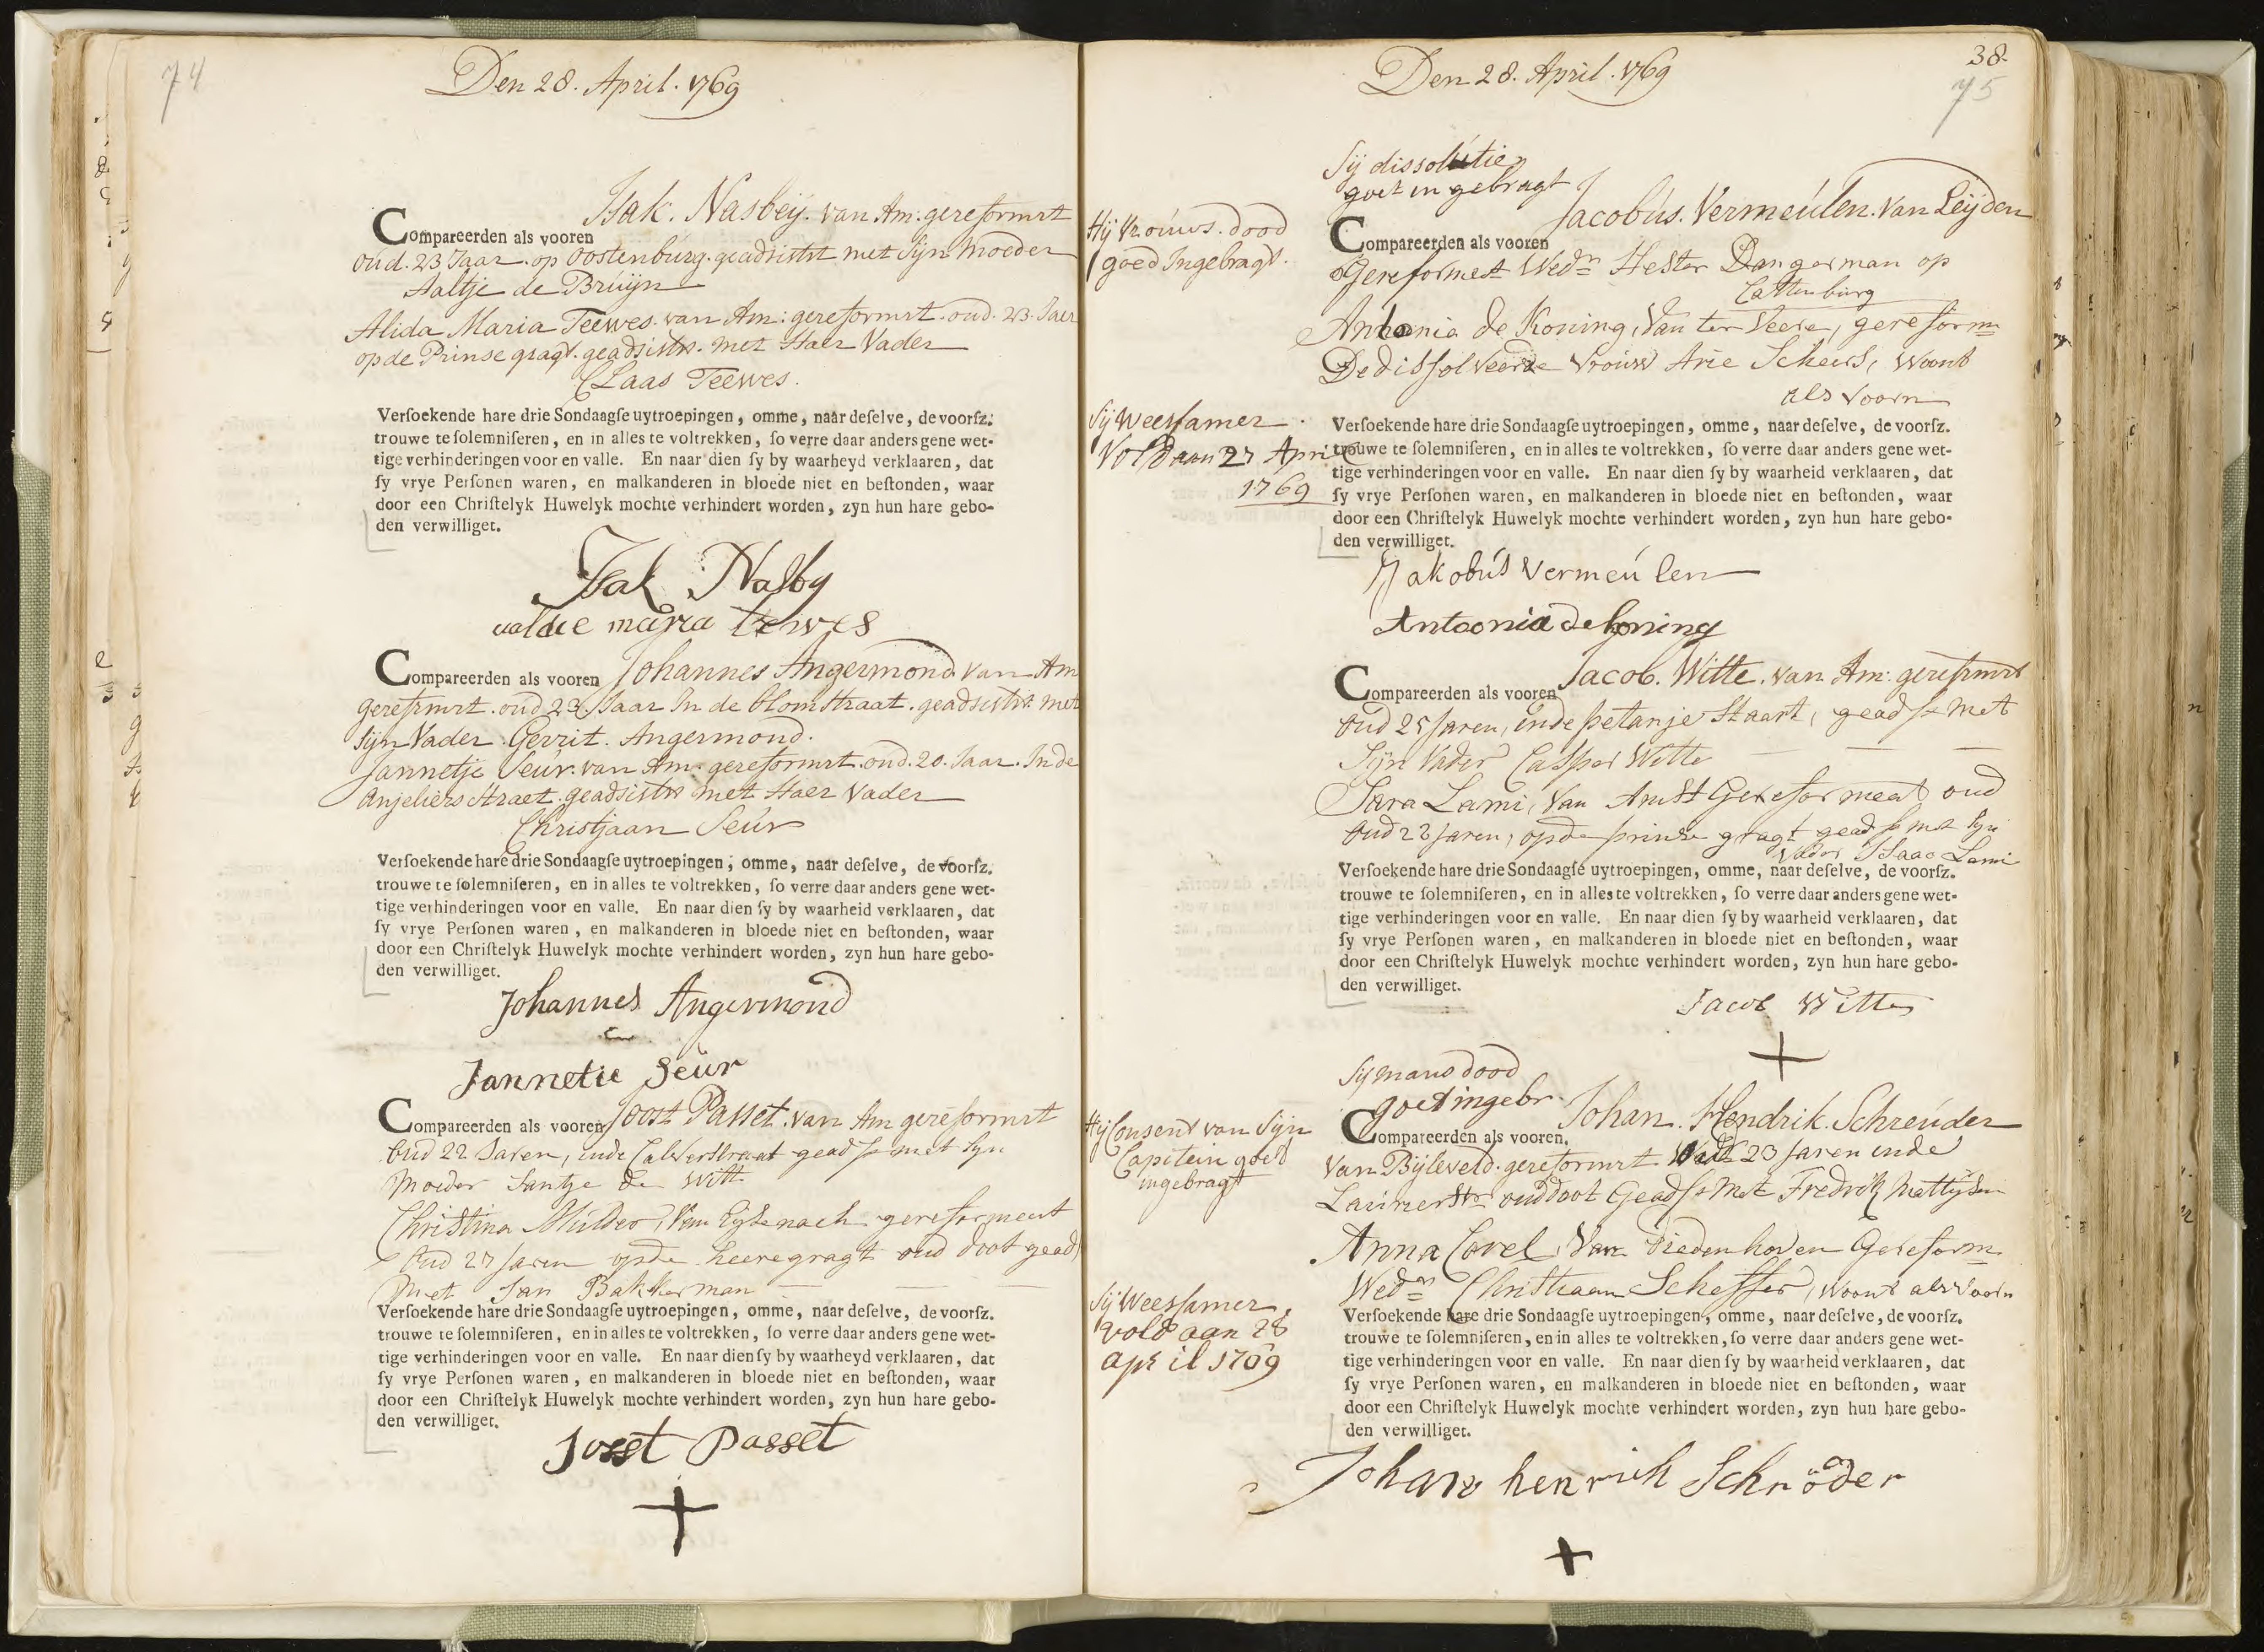 74
Den 28. April. 1769
Isak. Nasbeij. van Am: gereformrt
Compareerden als vooren
oud. 23 Jaar. op Oostenburg. geadsistrt met Sijn Moeder
Aaltje de Bruijn
Alida Maria Teewes. van Am: gereformrt. oud. 23. Jaer
op de Prinse gragt. geadsistrt. met Haer Vader
Claas Teewes.
Verſoekende hare drie Sondaagſe uytroepingen, omme, naar deſelve, de voorſz.
trouwe te ſolemniſeren, en in alles te voltrekken, ſo verre daar anders gene wet-
tige verhinderingen voor en valle. En naar dien ſy by waarheyd verklaaren, dat
ſy vrye Perſonen waren, en malkanderen in bloede niet en beſtonden, waar
door een Chriſtelyk Huwelyk mochte verhindert worden, zyn hun hare gebo-
den verwilliget.
Isak Nasby
aaldie maria tewes
Compareerden als vooren Johannes Angermond van Am
gerefrmrt. oud 23 Jaar In de blomstraat. geadsistrt. met
Sijn Vader. Gerrit. Angermond.
Jannetje Seúr. van Am. gereformrt. oud. 20. Jaar. In de
Anjeliers straet. geadsistrt met Haer Vader
Christjaan Seúr
Verſoekende hare drie Sondaagſe uytroepingen, omme, naar deſelve, de voorſz.
trouwe te ſolemniſeren, en in alles te voltrekken, ſo verre daar anders gene wet-
tige verhinderingen voor en valle. En naar dien ſy by waarheid verklaaren, dat
ſy vrye Perſonen waren, en malkanderen in bloede niet en beſtonden, waar
door een Chriſtelyk Huwelyk mochte verhindert worden, zyn hun hare gebo-
den verwilliget.
Johannes Angermond
en
Jannetie Seúr
Compareerden als vooren Joost Passet. van Am gereformrt
Oud 22 Jaren, inde Calverstraat geads met Syn
Moeder Jantje de Witt
Christina Mulder, Van Eysenach gereformeert
Oud 27 Jaren opde heeregragt oud doot geads
met Jan Bakkerman
Verſoekende hare drie Sondaagſe uytroepingen, omme, naar deſelve, de voorſz.
trouwe te ſolemniſeren, en in alles te voltrekken, ſo verre daar anders gene wet-
tige verhinderingen voor en valle. En naar dien ſy by waarheyd verklaaren, dat
ſy vrye Perſonen waren, en malkanderen in bloede niet en beſtonden, waar
door een Chriſtelyk Huwelyk mochte verhindert worden, zyn hun hare gebo-
den verwilliget.
Joost Passet
38.
75
Den 28. April. 1769
Sij dissolutie
goet in gebragt
Hij Vrouws. dood
goed Ingebragt.
Jacobús. Vermeúlen. van Leijden
Compareerden als vooren
Gereformeert Wedr Hester Dangerman op
Cattenburg
Antonia de Koning, Van ter Veere, gereform
De dissolveerde Vrouw Arie Scheers, Woont
als Voorn
Sij Weeskamer
Voldaan 27 April
1769
Verſoekende hare drie Sondaagſe uytroepingen, omme, naar deſelve, de voorſz.
trouwe te ſolemniſeren, en in alles te voltrekken, ſo verre daar anders gene wet-
tige verhinderingen voor en valle. En naar dien ſy by waarheid verklaaren, dat
ſy vrye Perſonen waren, en malkanderen in bloede niet en beſtonden, waar
door een Chriſtelyk Huwelyk mochte verhindert worden, zyn hun hare gebo-
den verwilliget.
Jakobús Vermeúlen
Antoonia de koning
Jacob. Witte. van Am: gerefrmrt
Compareerden als vooren
Oud 25 Jaren, inde Petanje Staart, geads met
Sijn Vader Casper Witte
Sara Lami, Van Amst Gereformeat oud
Oud 22 Jaren, opde prinse gragt geads met Syn
Vader Isaac Lami
Verſoekende hare drie Sondaagſe uytroepingen, omme, naar deſelve, de voorſz.
trouwe te ſolemniſeren, en in alles te voltrekken, ſo verre daar anders gene wet-
tige verhinderingen voor en valle. En naar dien ſy by waarheid verklaaren, dat
ſy vrye Perſonen waren, en malkanderen in bloede niet en beſtonden, waar
door een Chriſtelyk Huwelyk mochte verhindert worden, zyn hun hare gebo-
den verwilliget.
Jacob Witte
Sij mans dood
goet ingebr.
Hij Consent van Sijn
Capitein goed
ingebragt
Johan. Hendrik. Schreúder
Compareerden als vooren.
Van Bijleveld. gereformrt. Oud 23 Jaren inde
Laurierstr ouddoot Geads met Fredrik Mattijsen
Anna Covel, Van Diedenhoven Gereform
Wede Christiaan Scheffer, Woont als Voorn
Sij Weeskamer
vold aan 28
april 1769
Verſoekende hare drie Sondaagſe uytroepingen, omme, naar deſelve, de voorſz.
trouwe te ſolemniſeren, en in alles te voltrekken, ſo verre daar anders gene wet-
tige verhinderingen voor en valle. En naar dien ſy by waarheid verklaaren, dat
ſy vrye Perſonen waren, en malkanderen in bloede niet en beſtonden, waar
door een Chriſtelyk Huwelyk mochte verhindert worden, zyn hun hare gebo-
den verwilliget.
Johan henrich Schröder